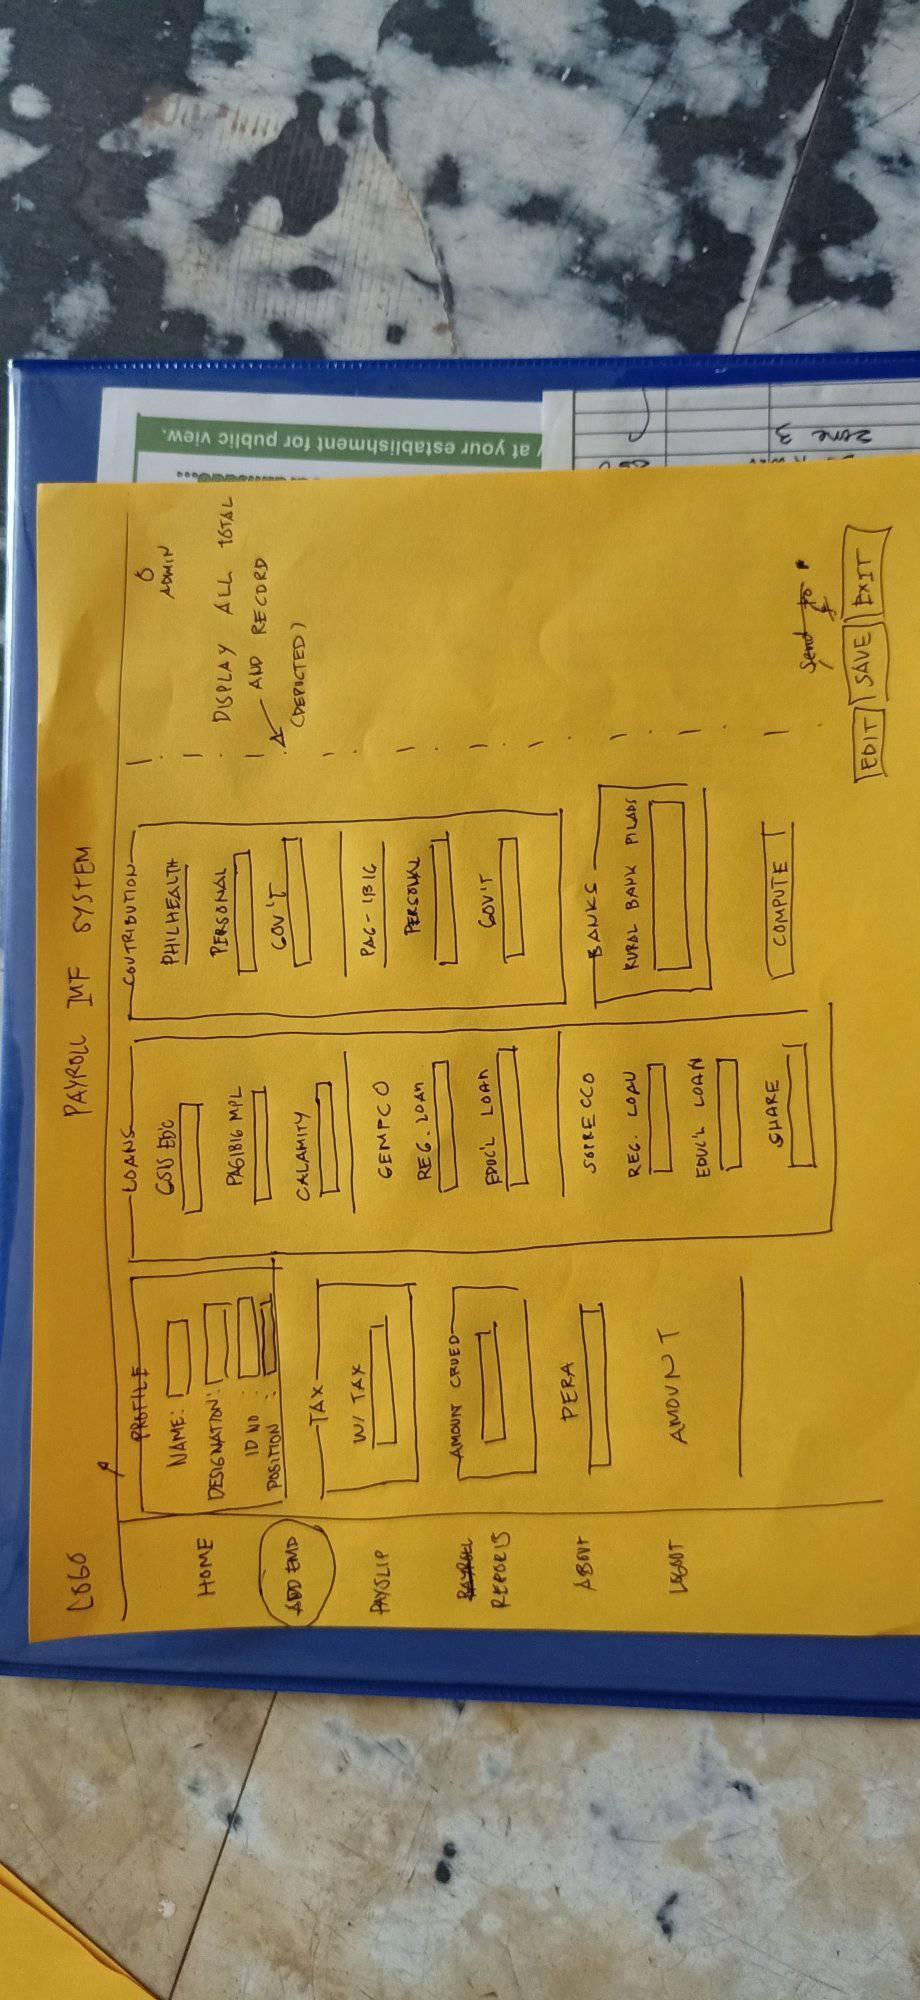 LOGO
PAYROLL INF SYSTEM
HOME
ADD EMP
PAYSLIP
REPORTS
ABOUT
LOGOUT
PROFILE
NAME:
DESIGNATION:
ID NO :
POSITION :
TAX
W/ TAX
AMOUNT CRUED
PERA
AMOUNT
LOANS
GSIS EDC
PAGIBIG MPL
CALAMITY
GEMPCO
REG. LOAN
EDUC'L LOAN
SOPRECCO
REG. LOAN
EDUC'L LOAN
SHARE
COUTRIBUTION
PHILHEALTH
PERSONAL
GOV'T
PAG-IBIG
PERSONAL
GOV'T
BANKS
RURAL BANK PILARS
COMPUTE
ADMIN
DISPLAY ALL TOTAL
AND RECORD
(DEPICTED)
send to
EDIT
SAVE
EXIT
at your establishment for public view.
zone 3